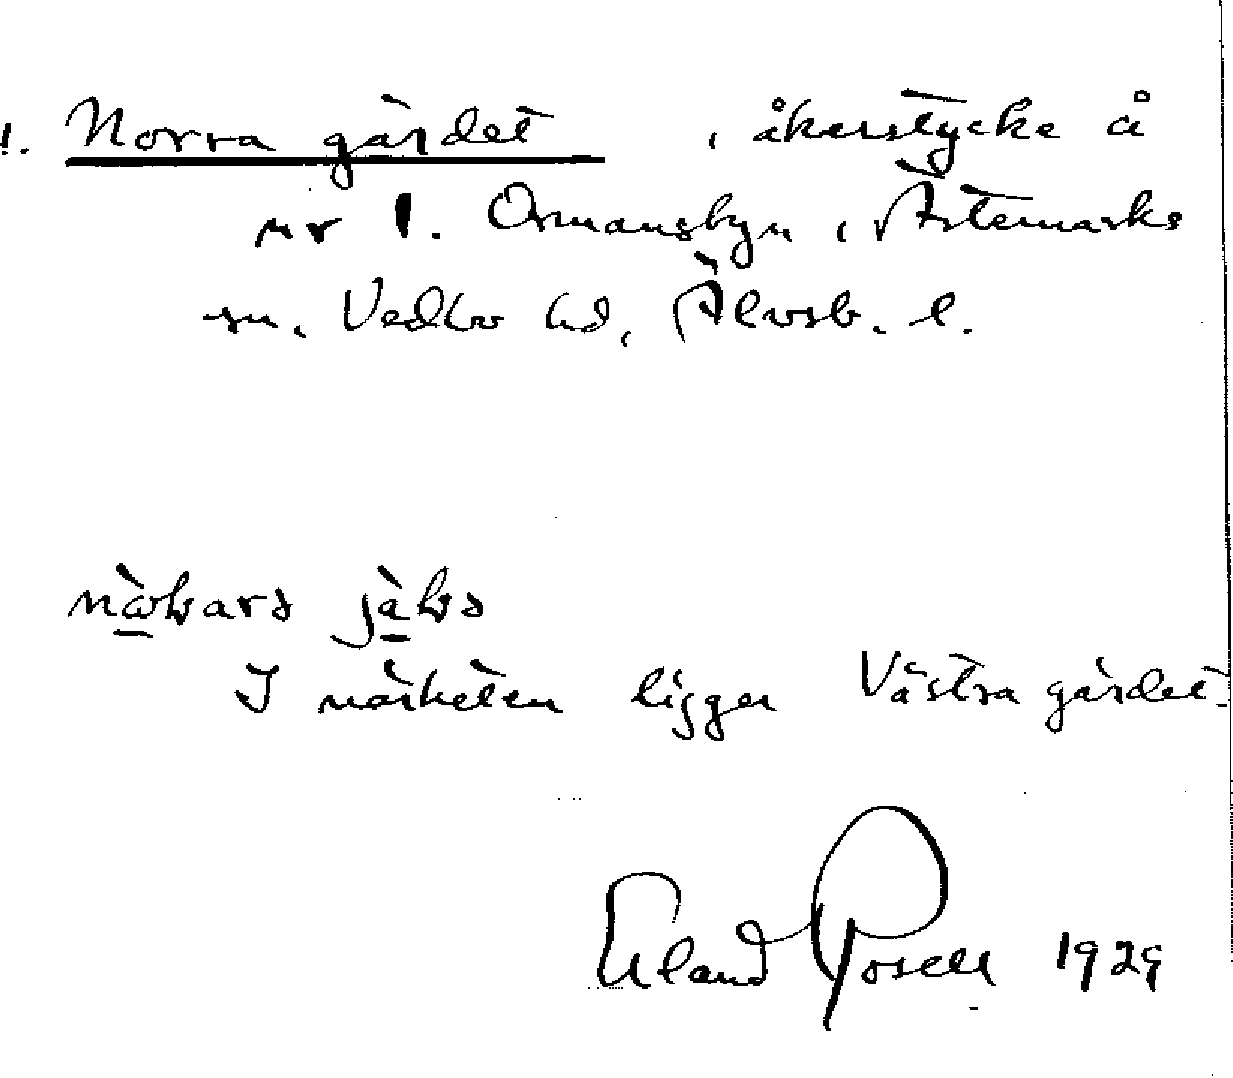 1. Norra gärdet , åkerstycke å
nr 1. Ormansbyn, Ärtemarks
sn. Vedbo hd, Älvsb. l.
I närheten ligger Västra gärdet.
Erland Rosell 1929